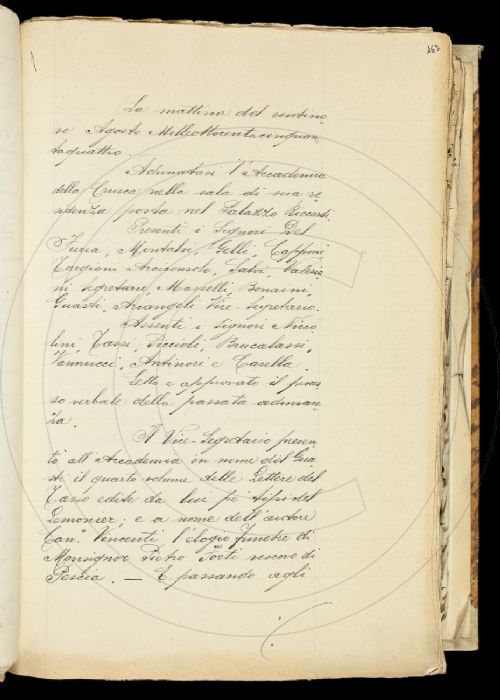 162
La mattina del ventino-
ve Agosto Milleottocentocinquan-
taquattro.
Adunatasi l'Accademia
della Crusca nella sala di sua re-
sidenza posta nel Palazzo Riccardi.
Presenti i Signori Del
Furia, Montalvi, Gelli, Capponi,
Targioni Arciconsolo, Salvi, Valeria-
ni segretario, Masselli, Bonaini,
Guasti, Arcangeli Vice-Segretario.
Assenti i signori Nicco-
lini, Tassi, Piccioli, Brucalassi,
Vannucci, Antinori e Casella.
Letto e approvato il proces-
so verbale della passata adunan-
za.
Il Vice-Segretario presen-
tò all'Accademia in nome del Gua-
sti il quarto volume delle Lettere del
Tasso edite da lui pe' tipi del
Lemonier; e a nome dell'autore
Can. Vincenti l'elogio funebre di
Monsignor Pietro Forti vescovo di
Pescia. — E passando agli